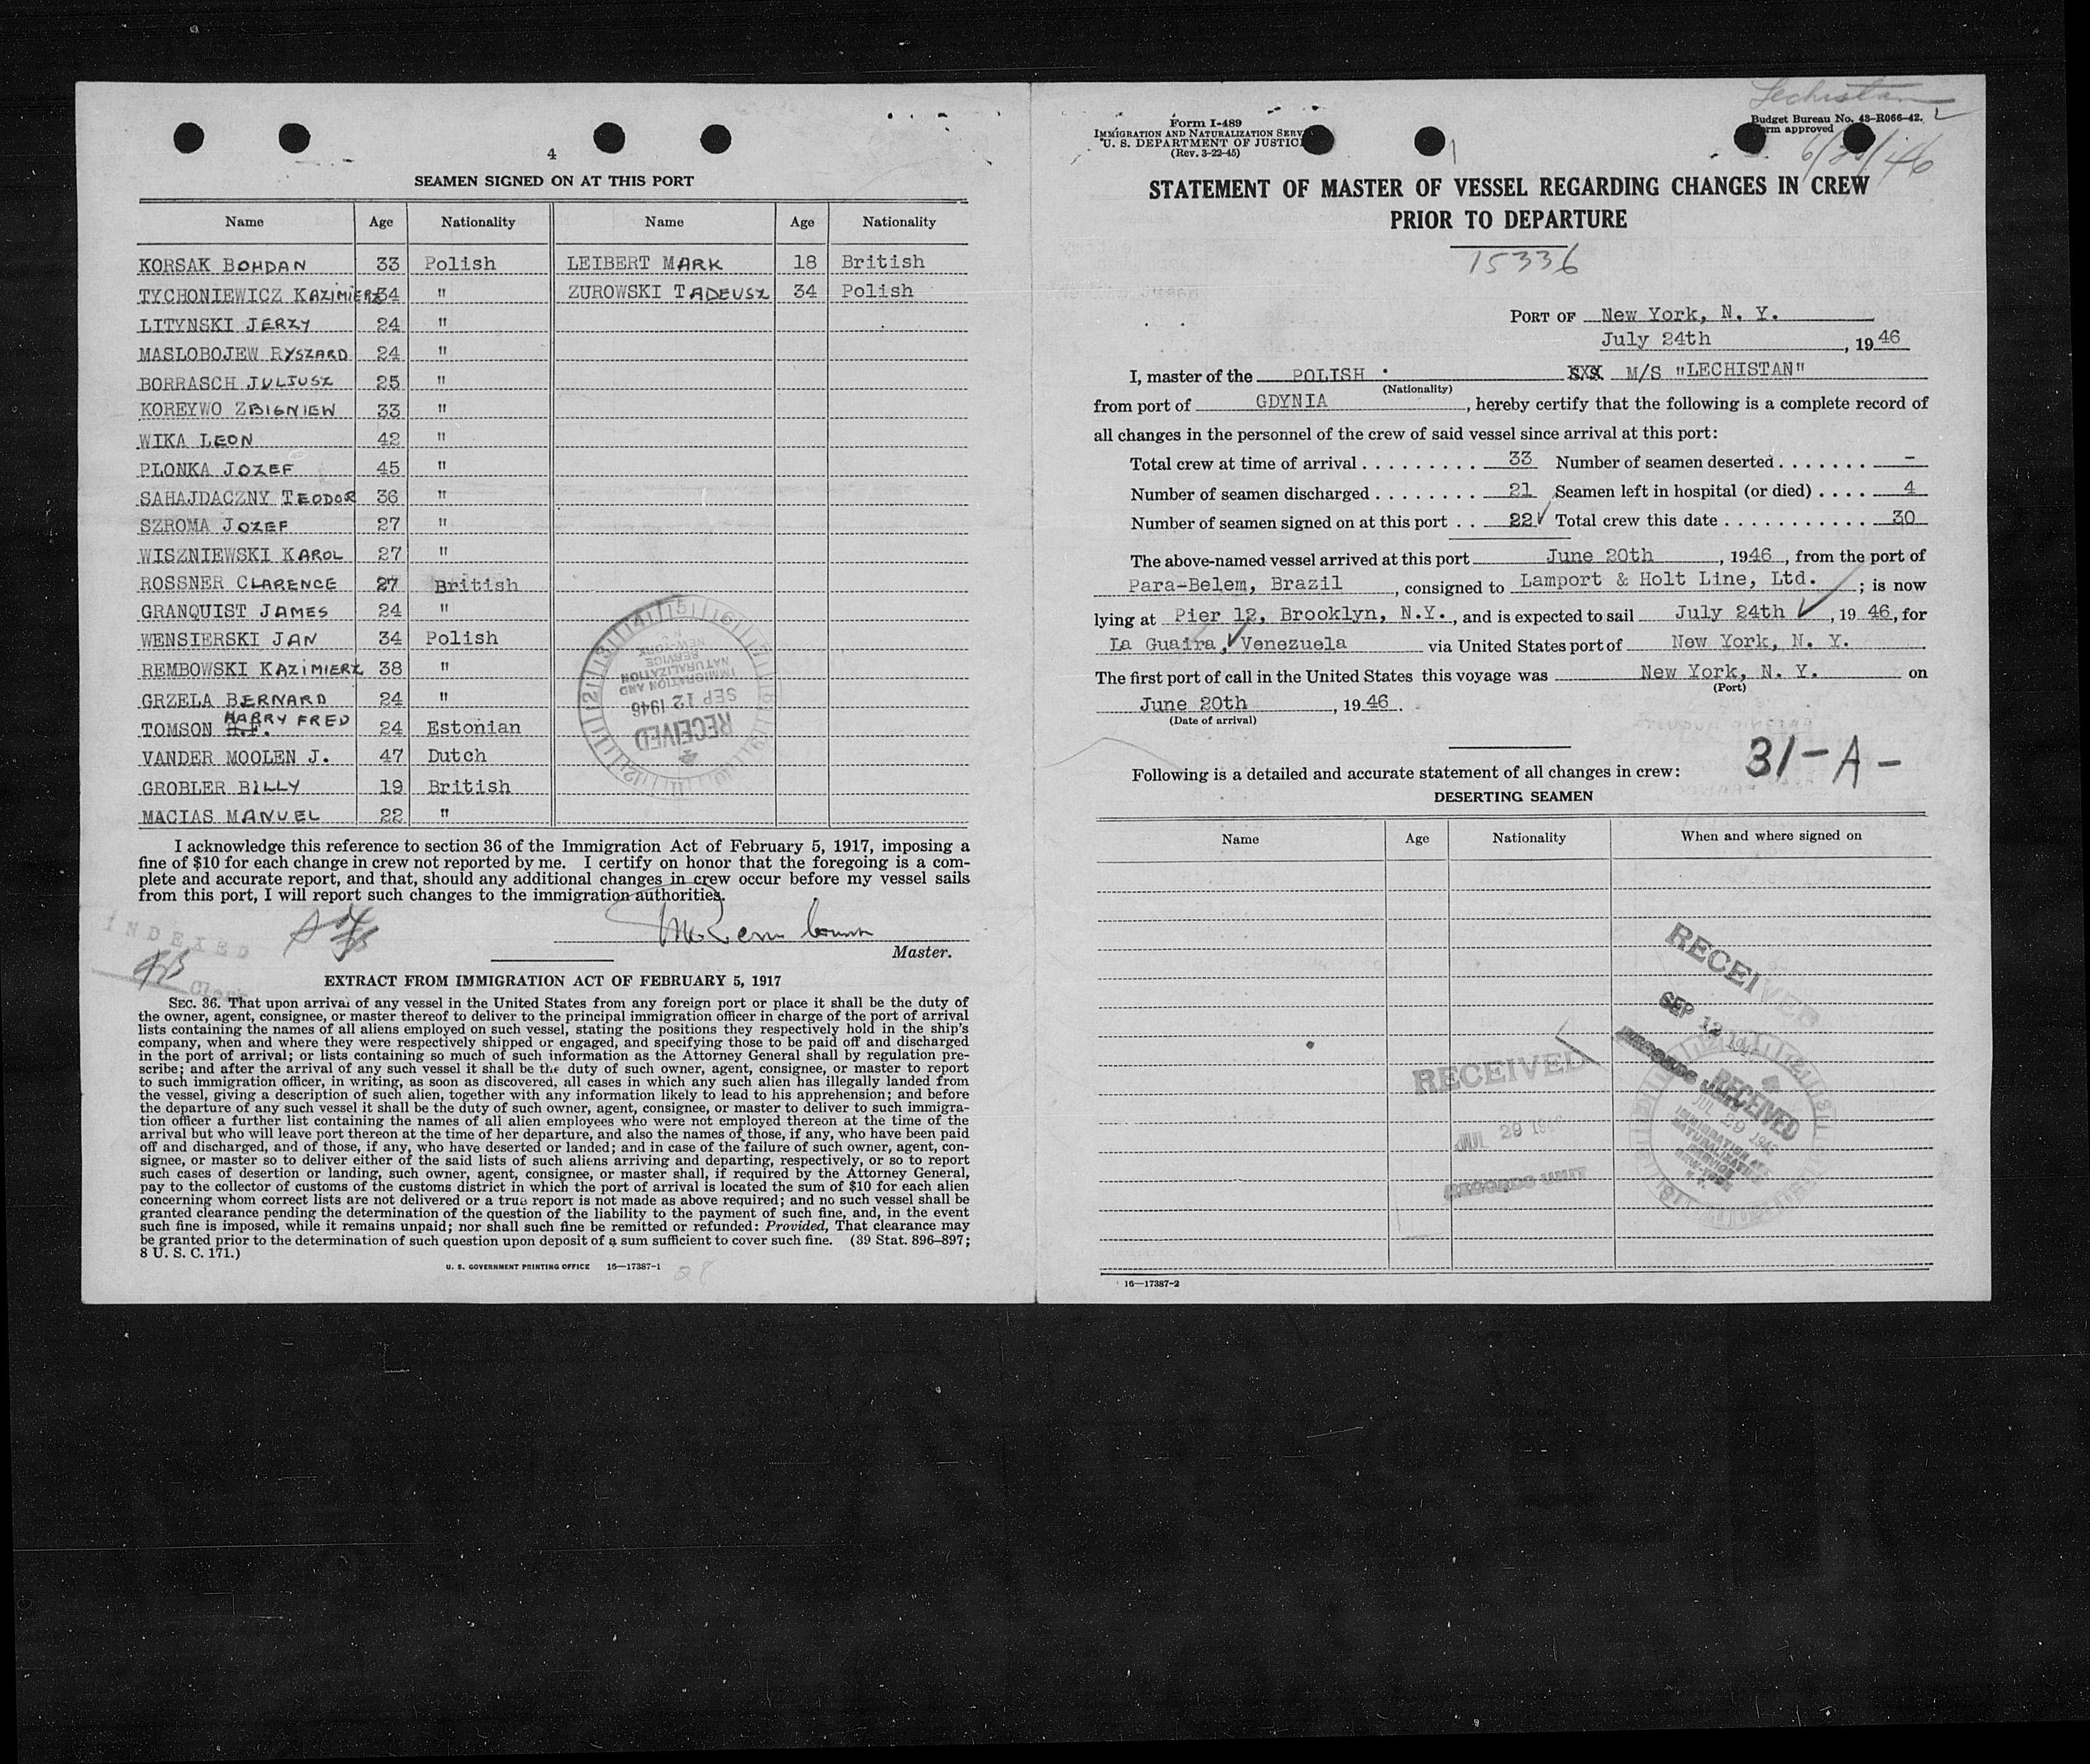 4
SEAMEN SIGNED ON AT THIS PORT
Name Age Nationality Name Age Nationality
KORSAK BOHDAN 33 Polish LEIBERT MARK 18 British
TYCHONIEWICZ KAZIMIERZ 34 " ZUROWSKI TADEUSZ 34 Polish
LITYNSKI JERZY 24 "
MASLOBOJEW RYSZARD 24 "
BORRASCH JULJUSZ 25 "
KOREYWO ZBIGNIEW 33 "
WIKA LEON 42 "
PLONKA JOZEF 45 "
SAHAJDACZNY TEODOR 36 "
SZROMA JOZEF 27 "
WISZNIEWSKI KAROL 27 "
ROSSNER CLARENCE 27 British
GRANQUIST JAMES 24 "
WENSIERSKI JAN 34 Polish
REMBOWSKI KAZIMIERZ 38 "
GRZELA BERNARD 24 "
TOMSON H.F. HARRY FRED 24 Estonian
VANDER MOOLEN J. 47 Dutch
GROBLER BILLY 19 British
MACIAS MANUEL 22 "
RECEIVED
SEP 12 1946
IMMIGRATION AND
NATURALIZATION
SERVICE
NEW-YORK
I acknowledge this reference to section 36 of the Immigration Act of February 5, 1917, imposing a
fine of $10 for each change in crew not reported by me. I certify on honor that the foregoing is a com-
plete and accurate report, and that, should any additional changes in crew occur before my vessel sails
from this port, I will report such changes to the immigration authorities.
INDEXED
Clerk
Master.
EXTRACT FROM IMMIGRATION ACT OF FEBRUARY 5, 1917
SEC. 36. That upon arrival of any vessel in the United States from any foreign port or place it shall be the duty of
the owner, agent, consignee, or master thereof to deliver to the principal immigration officer in charge of the port of arrival
lists containing the names of all aliens employed on such vessel, stating the positions they respectively hold in the ship's
company, when and where they were respectively shipped or engaged, and specifying those to be paid off and discharged
in the port of arrival; or lists containing so much of such information as the Attorney General shall by regulation pre-
scribe; and after the arrival of any such vessel it shall be the duty of such owner, agent, consignee, or master to report
to such immigration officer, in writing, as soon as discovered, all cases in which any such alien has illegally landed from
the vessel, giving a description of such alien, together with any information likely to lead to his apprehension; and before
the departure of any such vessel it shall be the duty of such owner, agent, consignee, or master to deliver to such immigra-
tion officer a further list containing the names of all alien employees who were not employed thereon at the time of the
arrival but who will leave port thereon at the time of her departure, and also the names of those, if any, who have been paid
off and discharged, and of those, if any, who have deserted or landed; and in case of the failure of such owner, agent, con-
signee, or master so to deliver either of the said lists of such aliens arriving and departing, respectively, or so to report
such cases of desertion or landing, such owner, agent, consignee, or master shall, if required by the Attorney General,
pay to the collector of customs of the customs district in which the port of arrival is located the sum of $10 for each alien
concerning whom correct lists are not delivered or a true report is not made as above required; and no such vessel shall be
granted clearance pending the determination of the question of the liability to the payment of such fine, and, in the event
such fine is imposed, while it remains unpaid; nor shall such fine be remitted or refunded: Provided, That clearance may
be granted prior to the determination of such question upon deposit of a sum sufficient to cover such fine. (39 Stat. 896–897;
8 U. S. C. 171.)
U. S. GOVERNMENT PRINTING OFFICE 16—17387-1
28
Lechistan
Form I-489
IMMIGRATION AND NATURALIZATION SERV
U. S. DEPARTMENT OF JUSTIC
(Rev. 3-22-45)
Budget Bureau No. 43-R066-42.
rm approved
6/20/46
STATEMENT OF MASTER OF VESSEL REGARDING CHANGES IN CREW
PRIOR TO DEPARTURE
15336
PORT OF New York, N. Y.
July 24th, 19 46
I, master of the POLISH XXX M/S "LECHISTAN"
(Nationality)
from port of GDYNIA, hereby certify that the following is a complete record of
all changes in the personnel of the crew of said vessel since arrival at this port:
Total crew at time of arrival . . . . . . . . . 33 Number of seamen deserted . . . . . . . –
Number of seamen discharged . . . . . . . . 21 Seamen left in hospital (or died) . . . . 4
Number of seamen signed on at this port . . 22 Total crew this date . . . . . . . . . . . 30
The above-named vessel arrived at this port June 20th, 1946, from the port of
Para-Belem, Brazil, consigned to Lamport & Holt Line, Ltd. ; is now
lying at Pier 12, Brooklyn, N.Y., and is expected to sail July 24th, 19 46, for
La Guaira, Venezuela via United States port of New York, N. Y.
The first port of call in the United States this voyage was New York, N. Y. on
(Port)
June 20th, 19 46.
(Date of arrival)
31-A-
Following is a detailed and accurate statement of all changes in crew:
DESERTING SEAMEN
Name Age Nationality When and where signed on
RECEIVED
SEP 12 194
RECORDS UNIT
RECEIVED
JUL 29 1946
RECORDS UNIT
RECEIVED
JUL 29 1946
IMMIGRATION AND
NATURALIZATION
SERVICE
NEW-YORK
N.Y.
16—17387-2